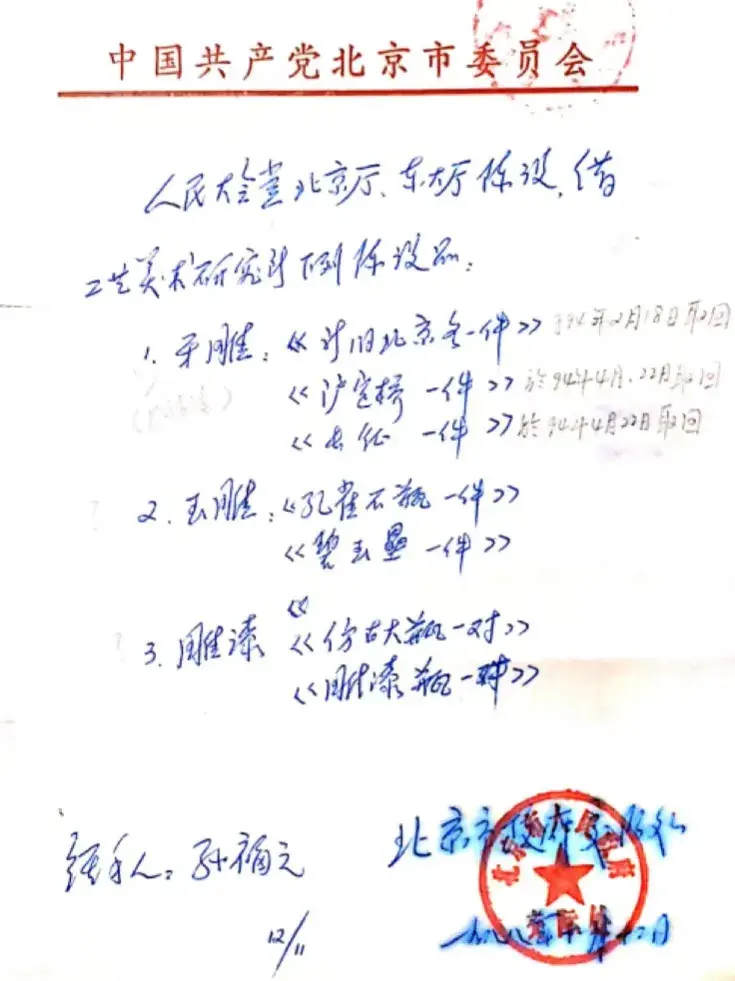 中国共产党北京市委员会
人民大会堂北京厅、东大厅陈设,借
工艺美术研究所下列陈设品:
1. 牙雕:《旧北京 一件》 于94年2月18日取回
《泸定桥 一件》 於94年4月、22日取回
《长征 一件》 於94年4月22日取回
2. 玉雕:《孔雀石瓶一件》
《碧玉罍一件》
3. 雕漆 《仿古大瓶一对》
《雕漆瓶一对》
经手人:孙福元
北京市
12/11